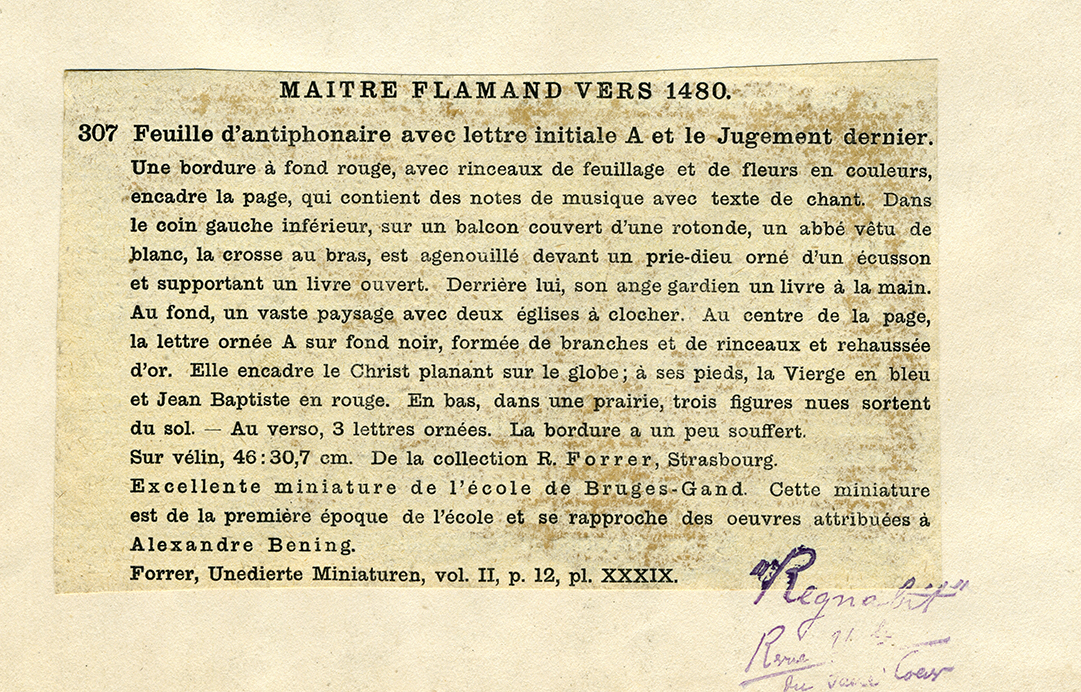 MAITRE FLAMAND VERS 1480.
307 Feuille d'antiphonaire avec lettre initiale A et le Jugement dernier.
Une bordure à fond rouge, avec rinceaux de feuillage et de fleurs en couleurs,
encadre la page, qui contient des notes de musique avec texte de chant. Dans
le coin gauche inférieur, sur un balcon couvert d'une rotonde, un abbé vêtu de
blanc, la crosse au bras, est agenouillé devant un prie-dieu orné d'un écusson
et supportant un livre ouvert. Derrière lui, son ange gardien un livre à la main.
Au fond, un vaste paysage avec deux églises à clocher. Au centre de la page,
la lettre ornée A sur fond noir, formée de branches et de rinceaux et rehaussée
d'or. Elle encadre le Christ planant sur le globe; à ses pieds, la Vierge en bleu
et Jean Baptiste en rouge. En bas, dans une prairie, trois figures nues sortent
du sol. — Au verso, 3 lettres ornées. La bordure a un peu souffert.
Sur vélin, 46:30,7 cm. De la collection R. Forrer, Strasbourg.
Excellente miniature de l'école de Bruges-Gand. Cette miniature
est de la première époque de l'école et se rapproche des oeuvres attribuées à
Alexandre Bening.
Forrer, Unedierte Miniaturen, vol. II, p. 12, pl. XXXIX.
"Regnabit"
Revue
du Sacré Coeur